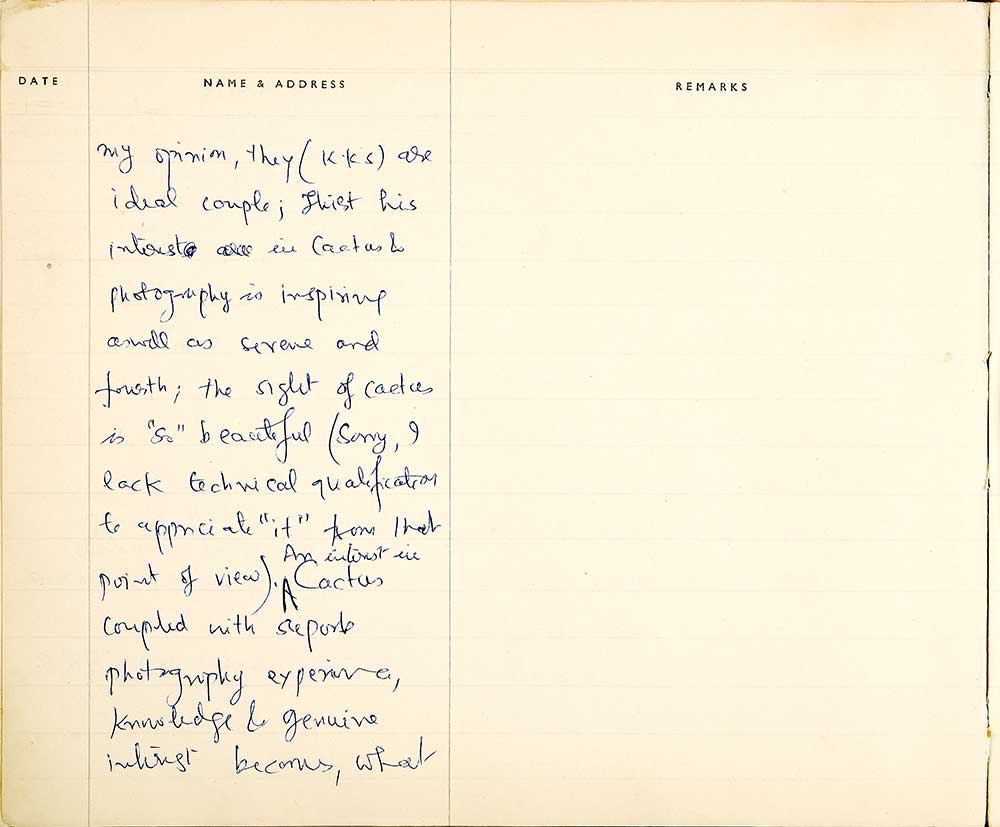 DATE
NAME & ADDRESS
REMARKS
my opinion, they (K.K's) are
ideal couple; Thist his
interest in Cactus &
photography is inspiring
aswell as serene and
fourth; the sight of cactus
is "so" beautiful (Sorry, I
lack technical qualification
to appriciate "it" from that
An interest in
point of view). Cactus
coupled with
photography experience,
knowledge & genuine
interest becomes, what